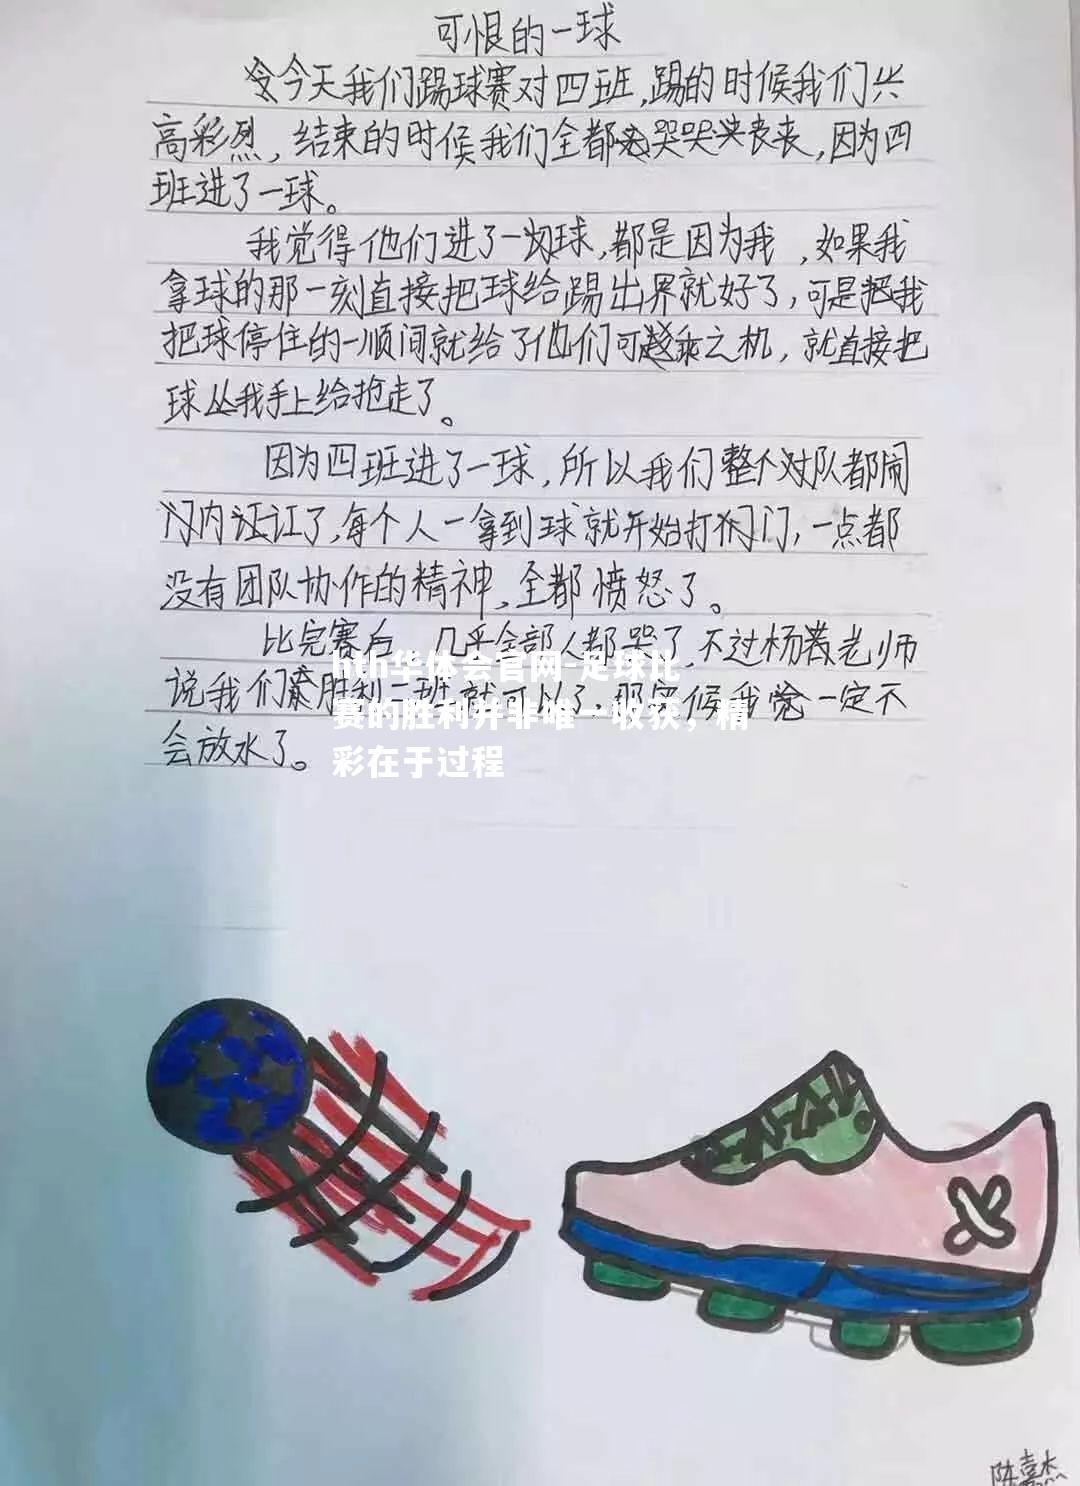 可恨的一球
今今天我们踢球赛对四班,踢的时候我们兴
高彩烈,结束的时候我们全都哭哭丧丧,因为四
班进了一球。
我觉得他们进了一球,都是因为我,如果我
拿球的那一刻直接把球给踢出界就好了,可是把我
把球停住的一顺间就给了他们可趁乘之机,就直接把
球丛我手上给抢走了。
因为四班进了一球,所以我们整个对队都闹
内讧讧了,每个人一拿到球就开始打闪门,一点都
没有团队协作的精神,全都愤怒了。
比完赛后,几乎全部人都哭了,不过杨老师
说我们赢胜利二班就可以了,那候我觉一定不
会放水了。
hth华体会官网-足球比
赛的胜利并非唯一收获,精
彩在于过程
陈嘉杰